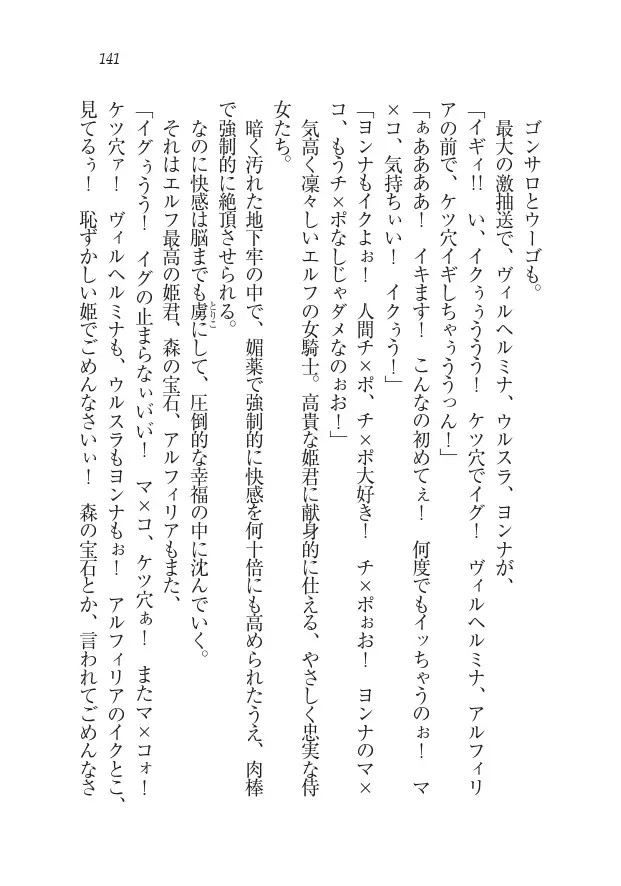 141
ゴンサロとウーゴも。
最大の激抽送で、ヴィルヘルミナ、ウルスラ、ヨンナが、
「イギィ!! い、イクぅぅううう! ケツ穴でイグ! ヴィルヘルミナ、アルフィリ
アの前で、ケツ穴イギしちゃぅううっん!」
「ぁああああ! イキます! こんなの初めてぇ! 何度でもイッちゃうのぉ! マ
×コ、気持ちぃい! イクぅう!」
「ヨンナもイクよぉ! 人間チ×ポ、チ×ポ大好き! チ×ポぉお! ヨンナのマ×
コ、もうチ×ポなしじゃダメなのぉお!」
気高く凜々しいエルフの女騎士。高貴な姫君に献身的に仕える、やさしく忠実な侍
女たち。
暗く汚れた地下牢の中で、媚薬で強制的に快感を何十倍にも高められたうえ、肉棒
で強制的に絶頂させられる。
なのに快感は脳までも虜にして、圧倒的な幸福の中に沈んでいく。
とりこ
それはエルフ最高の姫君、森の宝石、アルフィリアもまた、
「イグぅうう! イグの止まらなぃいい! マ×コ、ケツ穴ぁ! またマ×コォ!
ケツ穴ァ! ヴィルヘルミナも、ウルスラもヨンナもぉ! アルフィリアのイクとこ、
見てるぅ! 恥ずかしい姫でごめんなさいぃ! 森の宝石とか、言われてごめんなさ